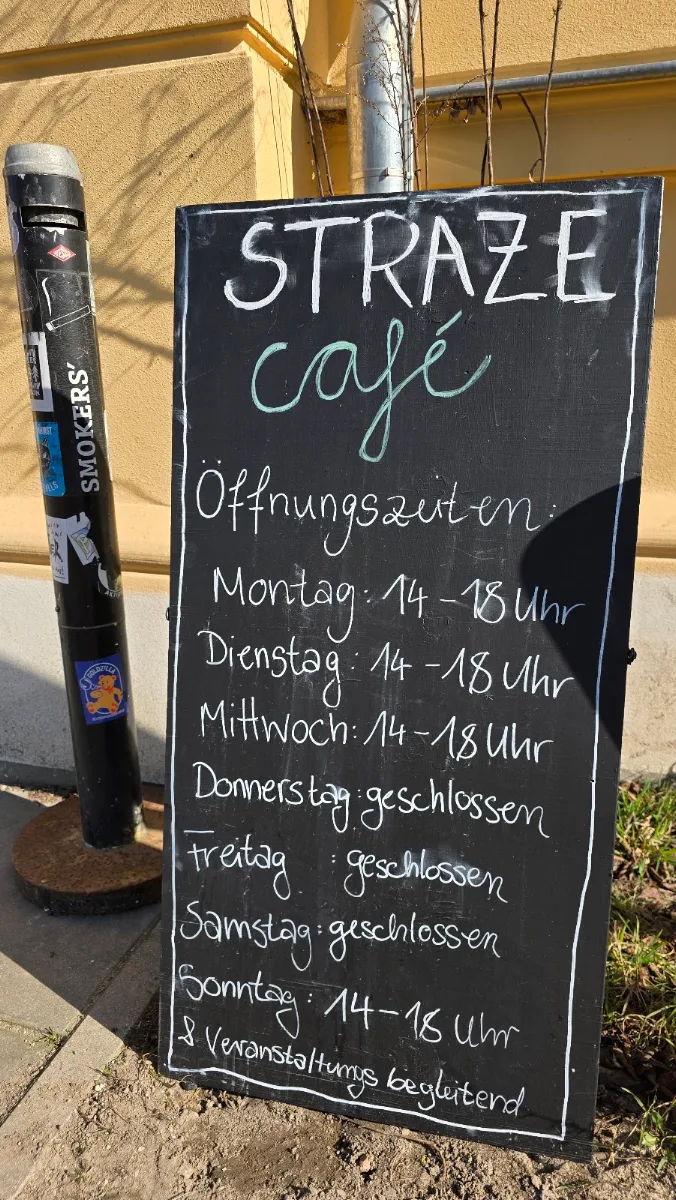 STRAZE
café
Öffnungszeiten:
Montag: 14-18 Uhr
Dienstag: 14-18 Uhr
Mittwoch: 14-18 Uhr
Donnerstag: geschlossen
Freitag : geschlossen
Samstag: geschlossen
Sonntag: 14-18 Uhr
& Veranstaltungs begleitend
SMOKERS'
GOLDZILLA